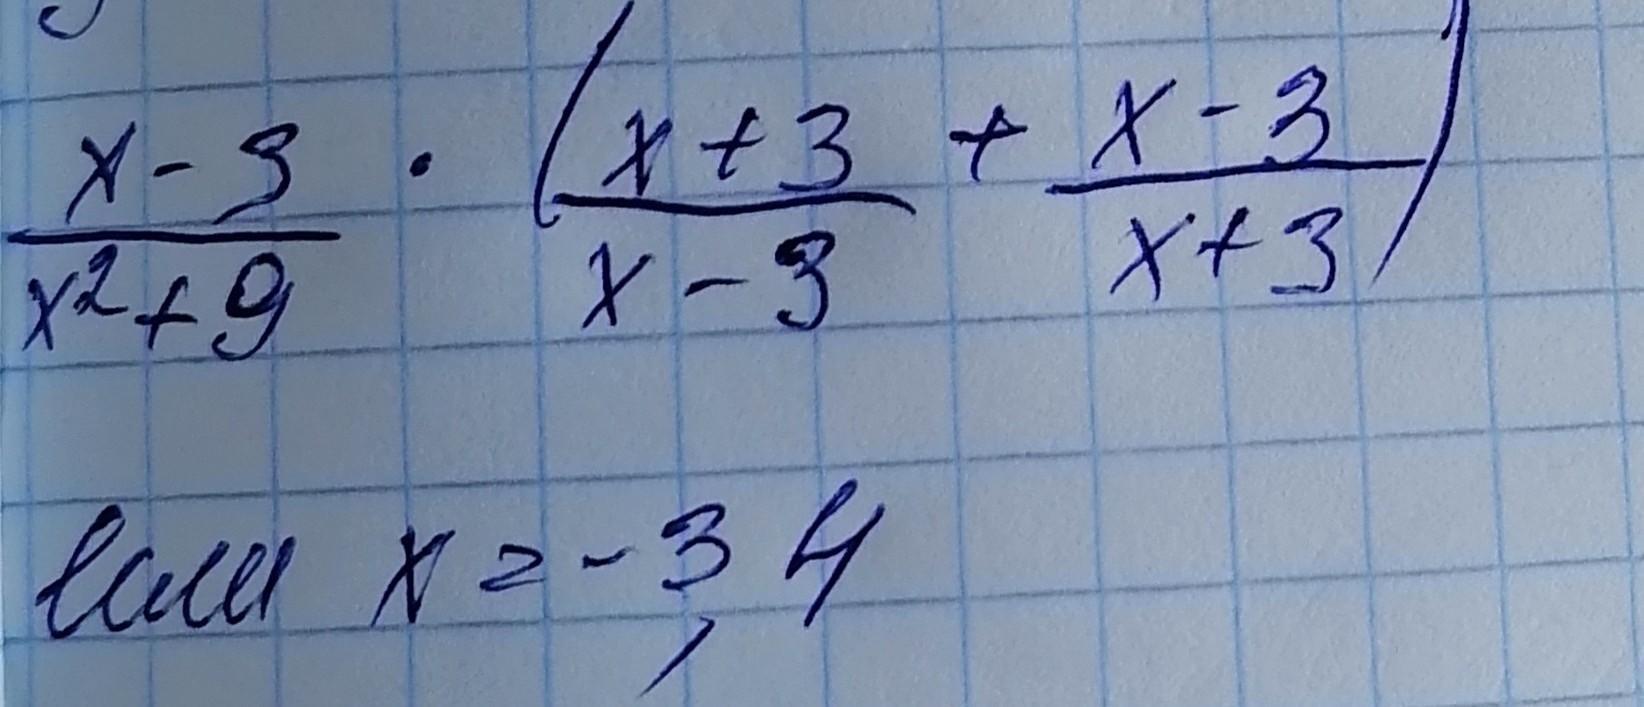 (x-3)/(x²+9) · ((x+3)/(x-3) + (x-3)/(x+3))
если x = -3,4